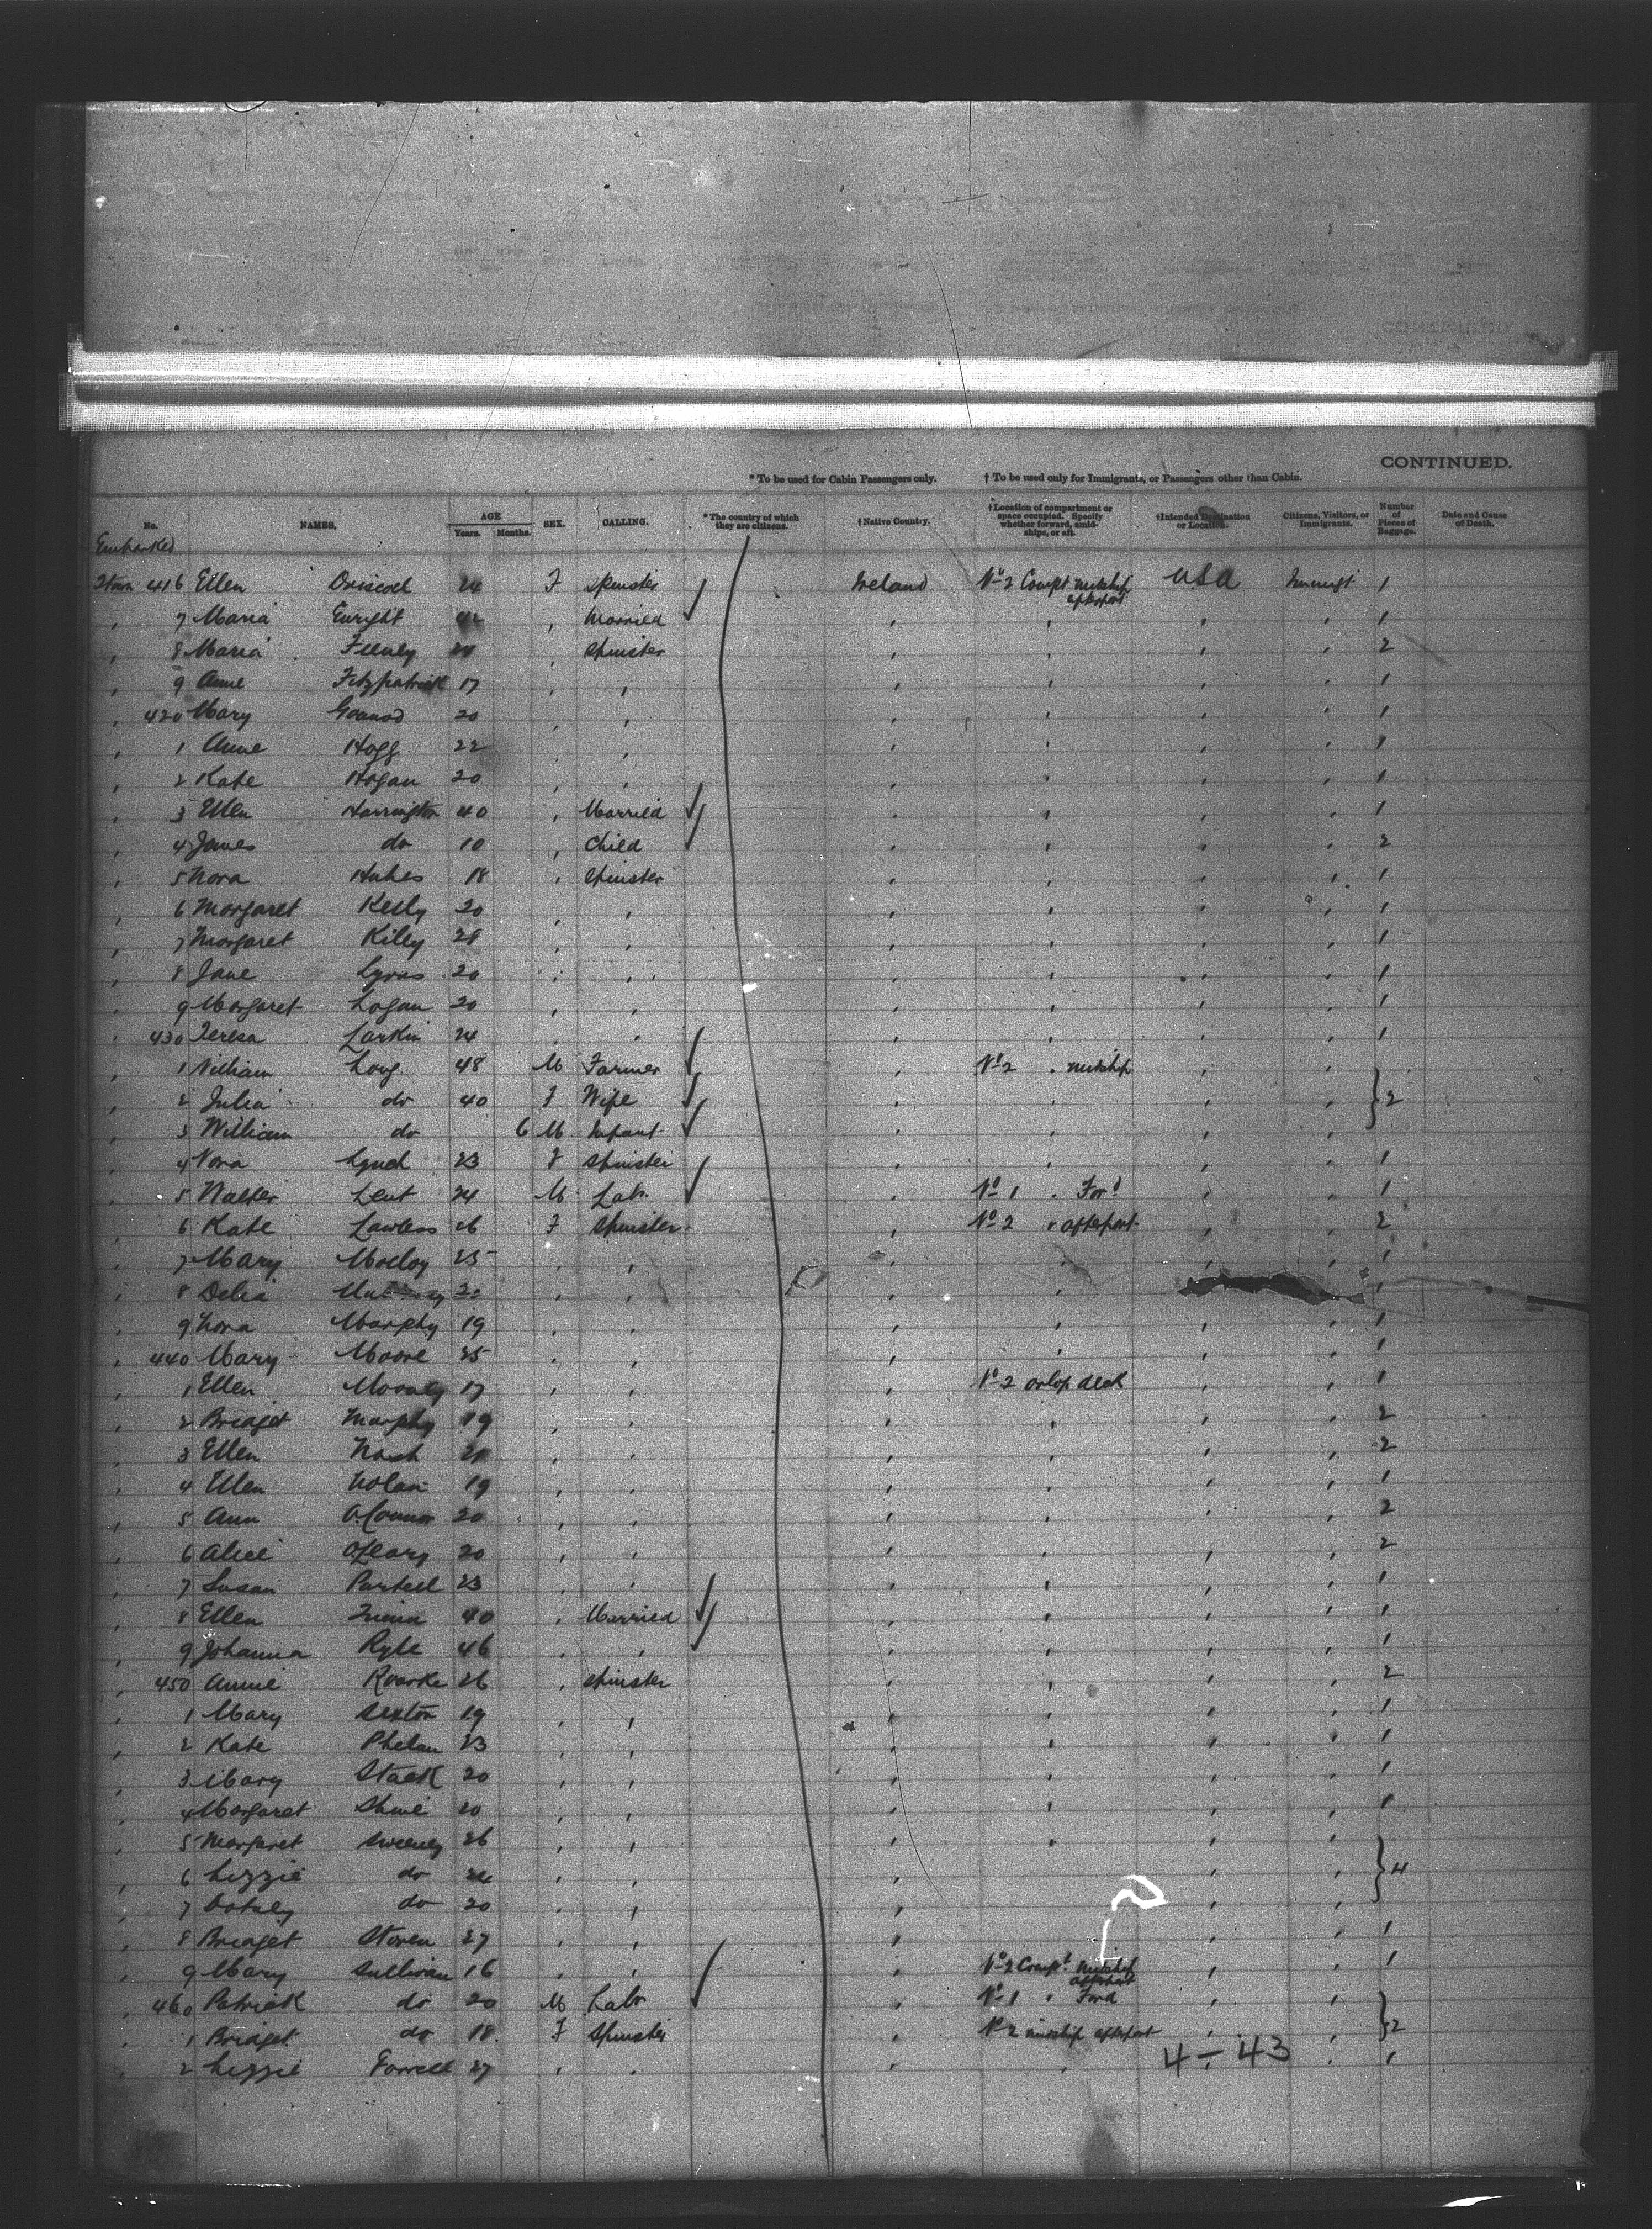 CONTINUED.
* To be used for Cabin Passengers only. † To be used only for Immigrants, or Passengers other than Cabin.
No. NAMES. AGE Years. Months. SEX. CALLING. * The country of which they are citizens. † Native Country. † Location of compartment or space occupied. Specify whether forward, amidships, or aft. † Intended Destination or Location. Citizens, Visitors, or Immigrants. Number of Pieces of Baggage. Date and Cause of Death.
Embarked
416 Ellen Driscoll 24 F Spinster Ireland No 2 Compt midship aftpart USA Immigt 1
" 7 Maria Enright 42 " Married " " " " 1
" 8 Maria " Spinster " " " " 2
" 9 Anne Fitzpatrick 17 " " " " " " 1
" 420 Mary 20 " " " " " " 1
" 1 Anne Hogg 22 " " " " " " 1
" 2 Kate Hogan 20 " " " " " " 1
" 3 Ellen Harrington 40 " Married " " " " 1
" 4 James do 10 " Child " " " " 2
" 5 Nora Hughes 18 " Spinster " " " " 1
" 6 Margaret Kelly 20 " " " " " " 1
" 7 Margaret Kiley " " " " " " 1
" 8 Jane Lyons 20 " " " " " " 1
" 9 Margaret Logan 20 " " " " " " 1
" 430 Teresa Larkin 24 " " " " " " 1
" 1 William Long 48 M Farmer " No 2 " midship " "
" 2 Julia do 40 F Wife " " " " } 2
" 3 William do 6 M Infant " " " "
" 4 Nora Lynch 23 F Spinster " " " " 1
" 5 Walter Lent 24 M Lab. " No 1 " Ford " " 1
" 6 Kate Lawless 26 F Spinster " No 2 " aftpart " " 2
" 7 Mary Molloy 25 " " " " " " 1
" 8 Delia " " " " 1
" 9 Nora Murphy 19 " " " " " " 1
" 440 Mary Moore 25 " " " " " " 1
" 1 Ellen 17 " " " No 2 orlop deck " " 1
" 2 Bridget Murphy 19 " " " " " " 2
" 3 Ellen Nash " " " " " " 2
" 4 Ellen Nolan 19 " " " " " " 1
" 5 Ann O'Connor 20 " " " " " " 2
" 6 Alice O'Leary 20 " " " " " " 2
" 7 Susan 23 " " " " " " 1
" 8 Ellen 40 " Married " " " " 1
" 9 Johanna Ryle 46 " " " " " " 1
" 450 Annie Roarke 26 " Spinster " " " " 2
" 1 Mary Sexton 19 " " " " " " 1
" 2 Kate Phelan 23 " " " " " " 1
" 3 Mary Stack 20 " " " " " " 1
" 4 Margaret Shine 20 " " " " " " 1
" 5 Margaret Sweeney 26 " " " " " "
" 6 Lizzie do 24 " " " " " } 4
" 7 do 20 " " " " "
" 8 Bridget 27 " " " " " 1
" 9 Mary Sullivan 16 " " " No 2 Compt midship aftpart " " 1
" 460 Patrick do 20 M Labr " No 1 " Ford " "
" 1 Bridget do 18 F Spinster " No 2 midship aftpart " " } 2
" 2 Lizzie Farrell 27 " " " " " " 1
4 - 43